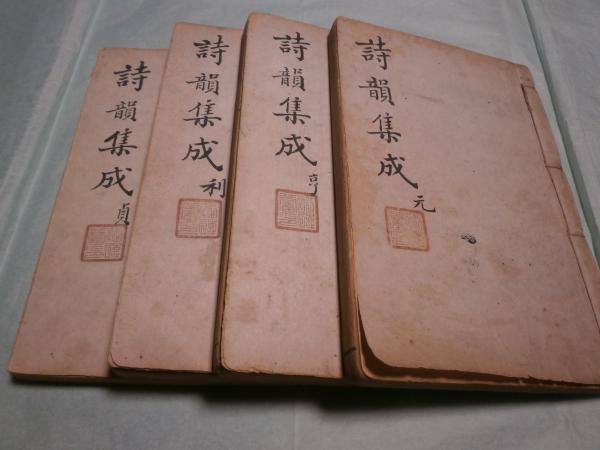 詩韻集成 元
詩韻集成 亨
詩韻集成 利
詩韻集成 貞